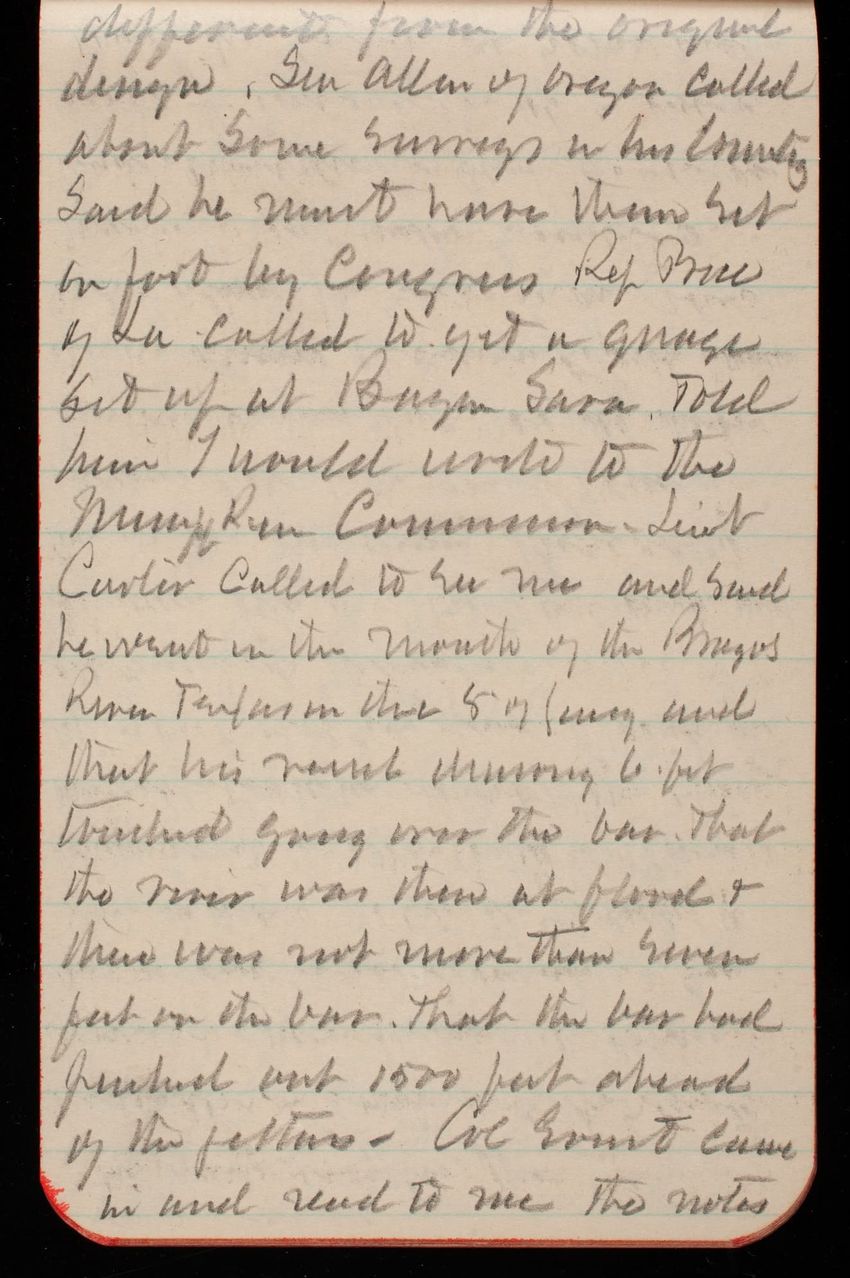 different from the original
design. Sen Allen of Oregon called
about some surveys in his County
Said he must have them set
on foot by Congress Rep Price
of La called to get a guage
set up at Bayou Sara. Told
him I would write to the
Missippi River Commission. Lieut
Carter called to see me and said
he went in the mouth of the Brazos
River Texas on the 8 of and
that his vessel drawing 6 feet
touched going over the bar. That
the river was then at flood &
there was not more than seven
feet on the bar. That the bar had
pushed out 1500 feet ahead
of the jetties - Col came
in and read to me the notes